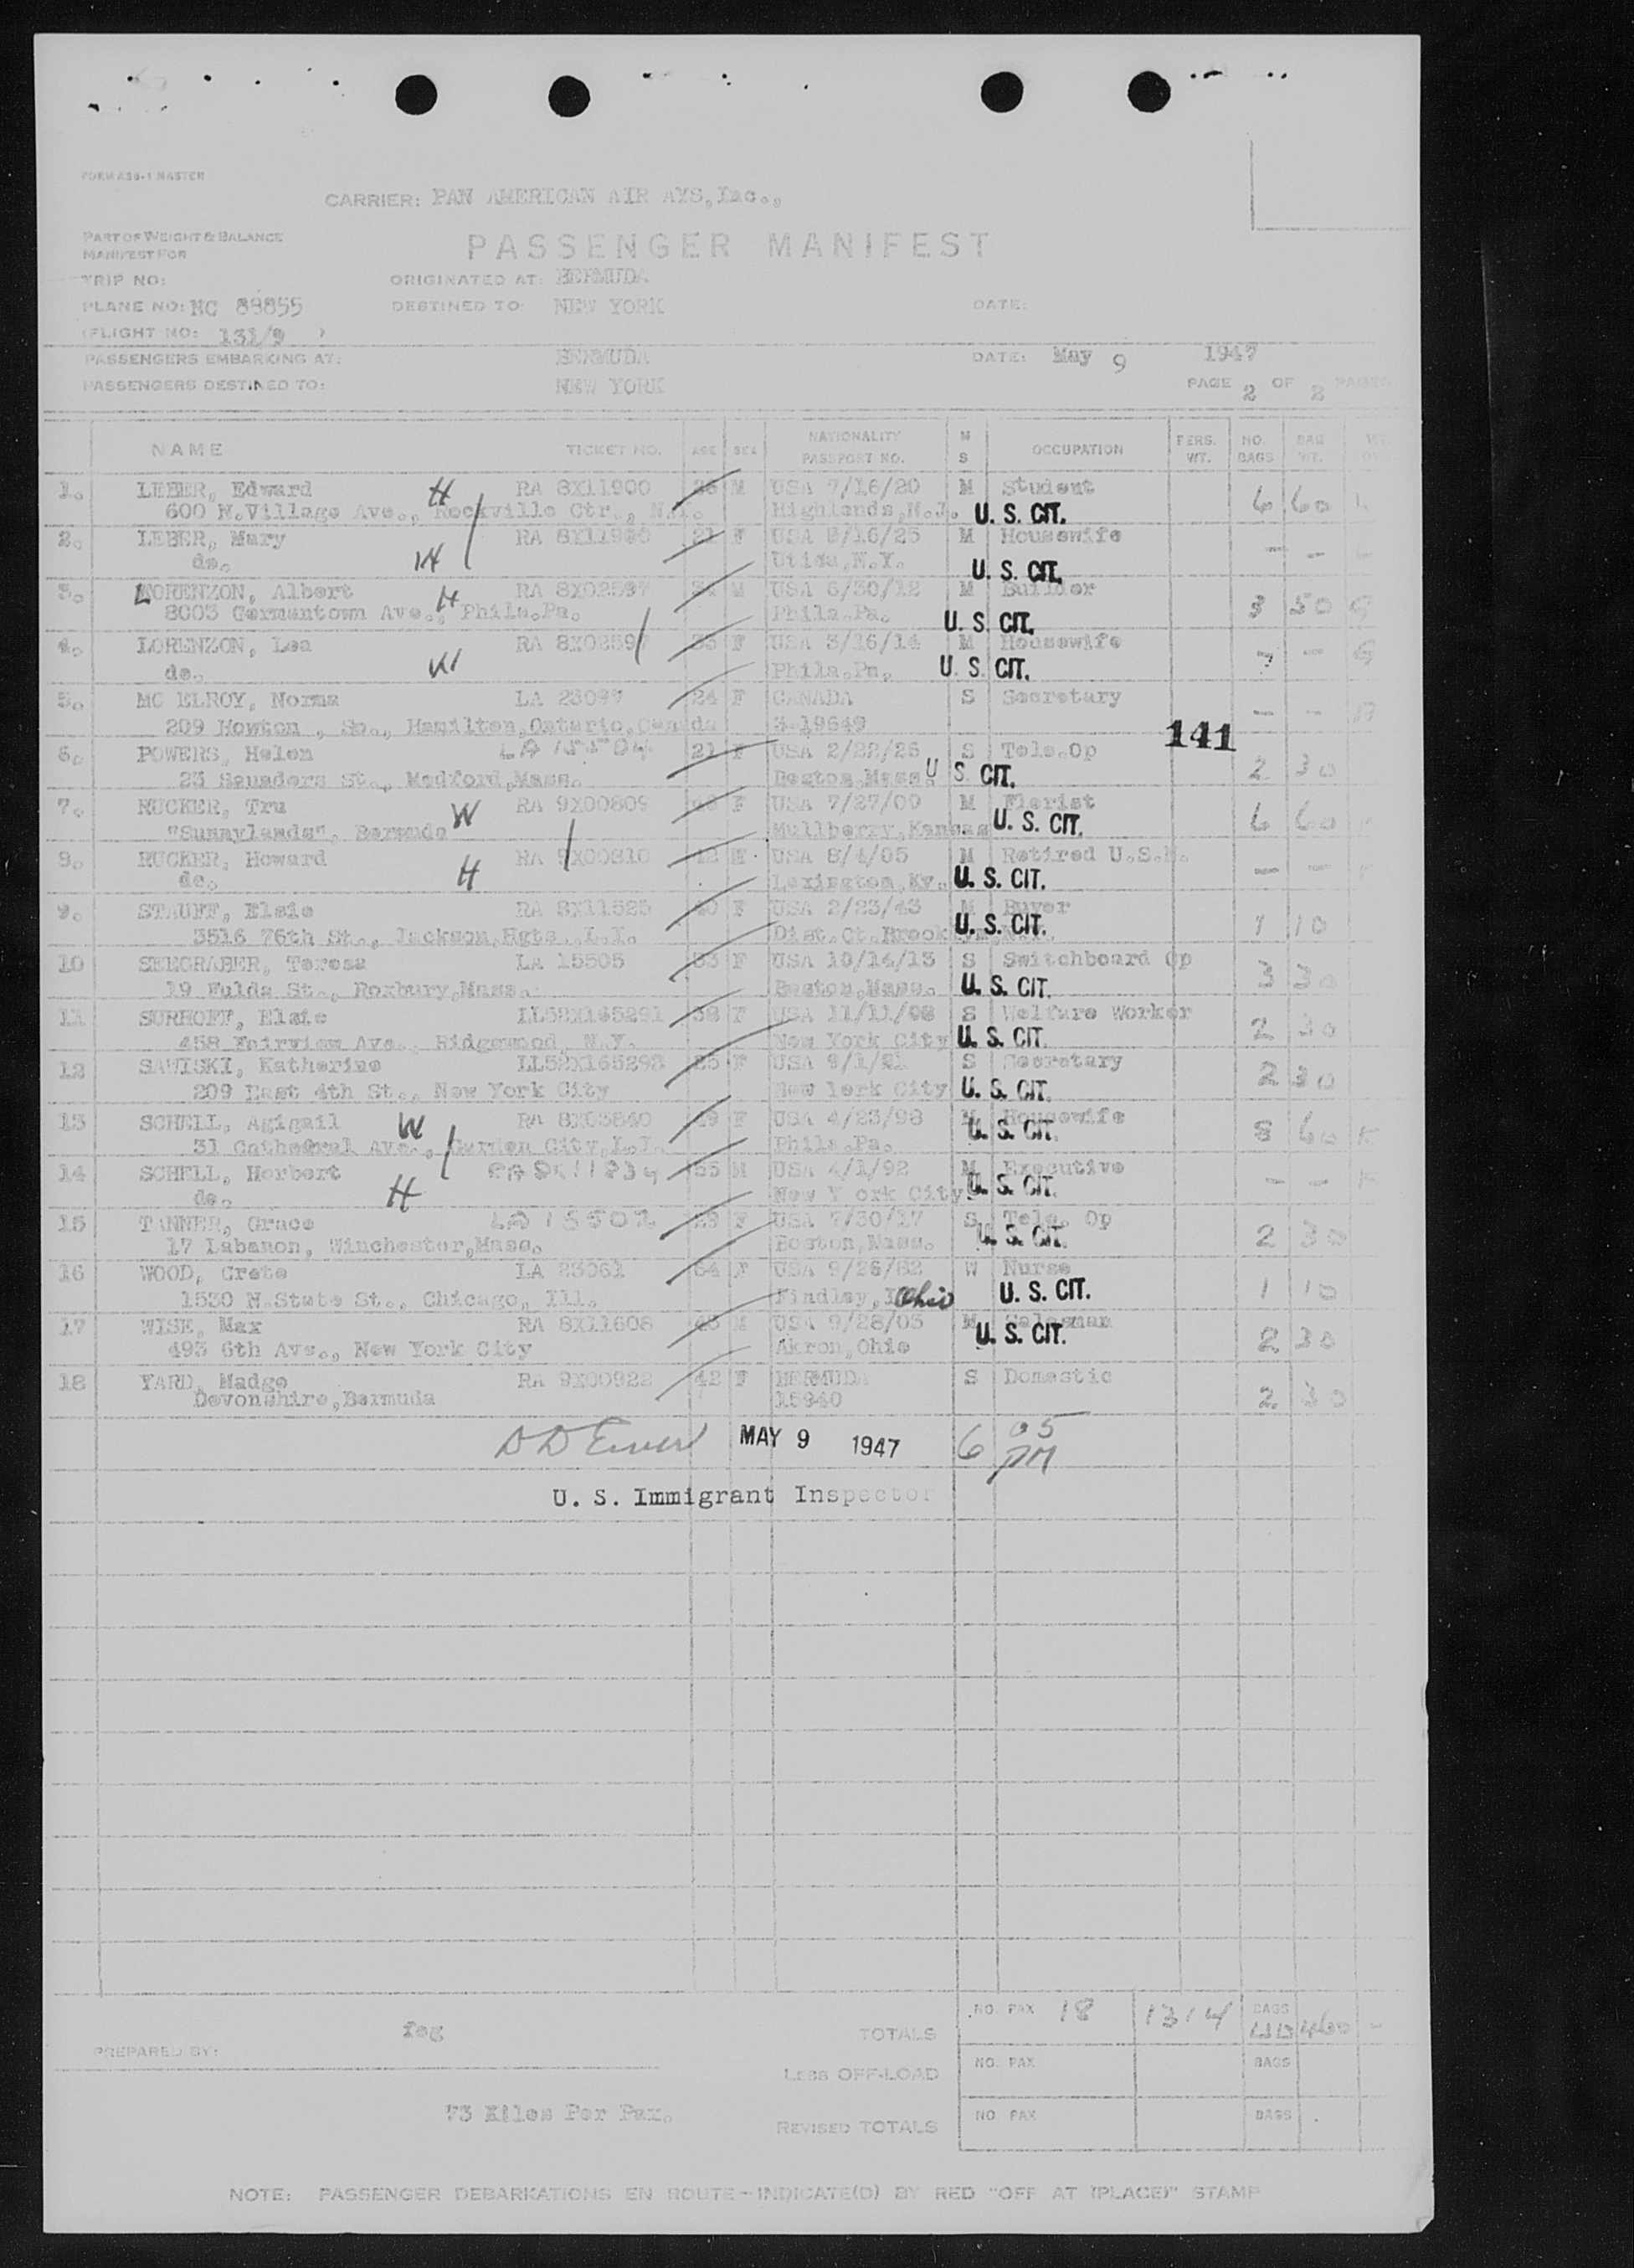 FORM AS9-1 MASTER
CARRIER: PAN AMERICAN AIR AYS, Inc.,
PART OF WEIGHT & BALANCE
MANIFEST FOR
PASSENGER MANIFEST
TRIP NO: ORIGINATED AT: BERMUDA
PLANE NO: NC 88855 DESTINED TO: NEW YORK DATE:
(FLIGHT NO: 131/9 )
PASSENGERS EMBARKING AT: BERMUDA DATE: May 9 1947
PASSENGERS DESTINED TO: NEW YORK PAGE 2 OF 2 PAGES
NAME TICKET NO. AGE SEX NATIONALITY PASSPORT NO. M S OCCUPATION PERS. WT. NO. BAGS BAG WT.
1. LEBER, Edward H RA 8X11900 26 M USA 7/16/20 M Student 6 60
600 N.Village Ave., Rockville Ctr., N.Y. Highlands,N.J. U. S. CIT.
2. LEBER, Mary W RA 21 F USA M Housewife - -
do. Utica,N.Y. U. S. CIT.
3. LORENZON, Albert H RA 8X02597 M USA 6/30/12 M Builder 3 50 G
8003 Germantown Ave., Phila.Pa. Phila.Pa. U. S. CIT.
4. LORENZON, Lea W RA 8X02597 F USA 3/16/14 M Housewife - - G
do. Phila.Pa. U. S. CIT.
5. MC ELROY, Norma LA 23097 24 F CANADA S Secretary - -
209 Howton , Sp., Hamilton,Ontario,Canada 3-19649
141
6. POWERS, Helen LA 15504 21 F USA 2/22/26 S Tele.Op 2 30
23 Saunders St., Medford,Mass. Boston,Mass. U S. CIT.
7. RUCKER, Tru W RA 9X00809 F USA 7/27/00 M Florist 6 60
"Sunnylands", Bermuda Mullberry,Kansas U. S. CIT.
8. RUCKER, Howard H RA 9X00810 42 M USA 8/4/05 M Retired U.S.N. - -
do. Lexington,Ky. U. S. CIT.
9. STAUFF, Elsie RA 8X11525 40 F USA 2/23/43 M Buyer 1 10
3516 76th St., Jackson,Hgts.,L.I. Dist.Ct.Brooklyn,N.Y. U. S. CIT.
10 SEEGRABER, Teresa LA 15505 33 F USA 10/14/13 S Switchboard Op 3 30
19 Fulda St., Roxbury,Mass. Boston,Mass. U. S. CIT.
11 SURHOFF, Elsie LL52X165291 38 F USA 11/11/08 S Welfare Worker 2 30
458 Fairview Ave., Ridgewood, N.Y. New York City U. S. CIT.
12 SAWISKI, Katherine LL52X165293 25 F USA 9/1/21 S Secretary 2 30
209 East 4th St., New York City New York City U. S. CIT.
13 SCHELL, Agigail W RA 8X03840 49 F USA 4/23/98 M Housewife 8 60 K
31 Cathedral Ave., Garden City,L.I. Phila.Pa. U. S. CIT.
14 SCHELL, Herbert H RA 8X11834 55 M USA 4/1/92 M Executive - - K
do. New Y ork City U. S. CIT.
15 TANNER, Grace LA 15502 29 F USA 7/30/17 S Tele. Op 2 30
17 Labanon, Winchester,Mass. Boston,Mass. U. S. CIT.
16 WOOD, Grete LA 23061 64 F USA 9/26/82 W Nurse 1 10
1530 N.State St., Chicago, Ill. Findley, Ohio U. S. CIT.
17 WISE, Max RA 8X11608 43 M USA 9/28/03 M Salesman 2 30
493 6th Ave., New York City Akron,Ohio U. S. CIT.
18 YARD, Madge RA 9X00922 42 F BERMUDA S Domestic 2 30
Devonshire,Bermuda 15940
MAY 9 1947 6 05 PM
U. S. Immigrant Inspector
TOTALS NO. PAX 18 1314 BAGS 460
PREPARED BY: feg
LESS OFF-LOAD NO. PAX BAGS
73 Kilos Per Pax.
REVISED TOTALS NO PAX BAGS
NOTE: PASSENGER DEBARKATIONS EN ROUTE - INDICATE(D) BY RED "OFF AT (PLACE)" STAMP